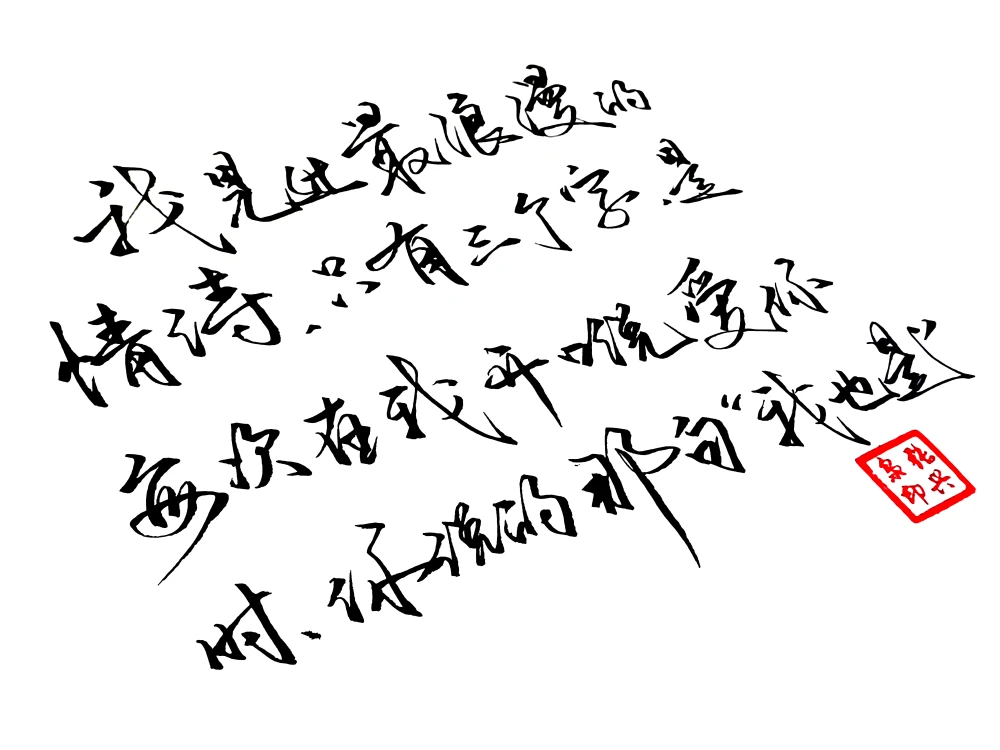 我见过最浪漫的
情诗,只有三个字是
每次在我开口说爱你
时、你说的那句“我也是”
张兴
印